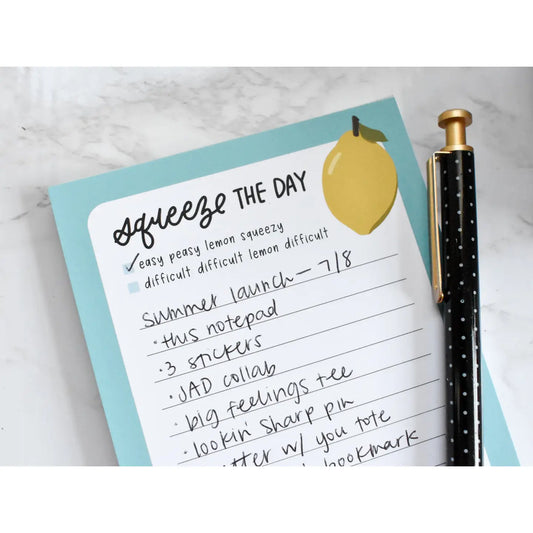 squeeze THE DAY
easy peasy lemon squeezy
difficult difficult lemon difficult
summer launch – 7/8
· this notepad
· 3 stickers
· JAD collab
· big feelings tee
· lookin' sharp pin
w/ you tote
bookmark